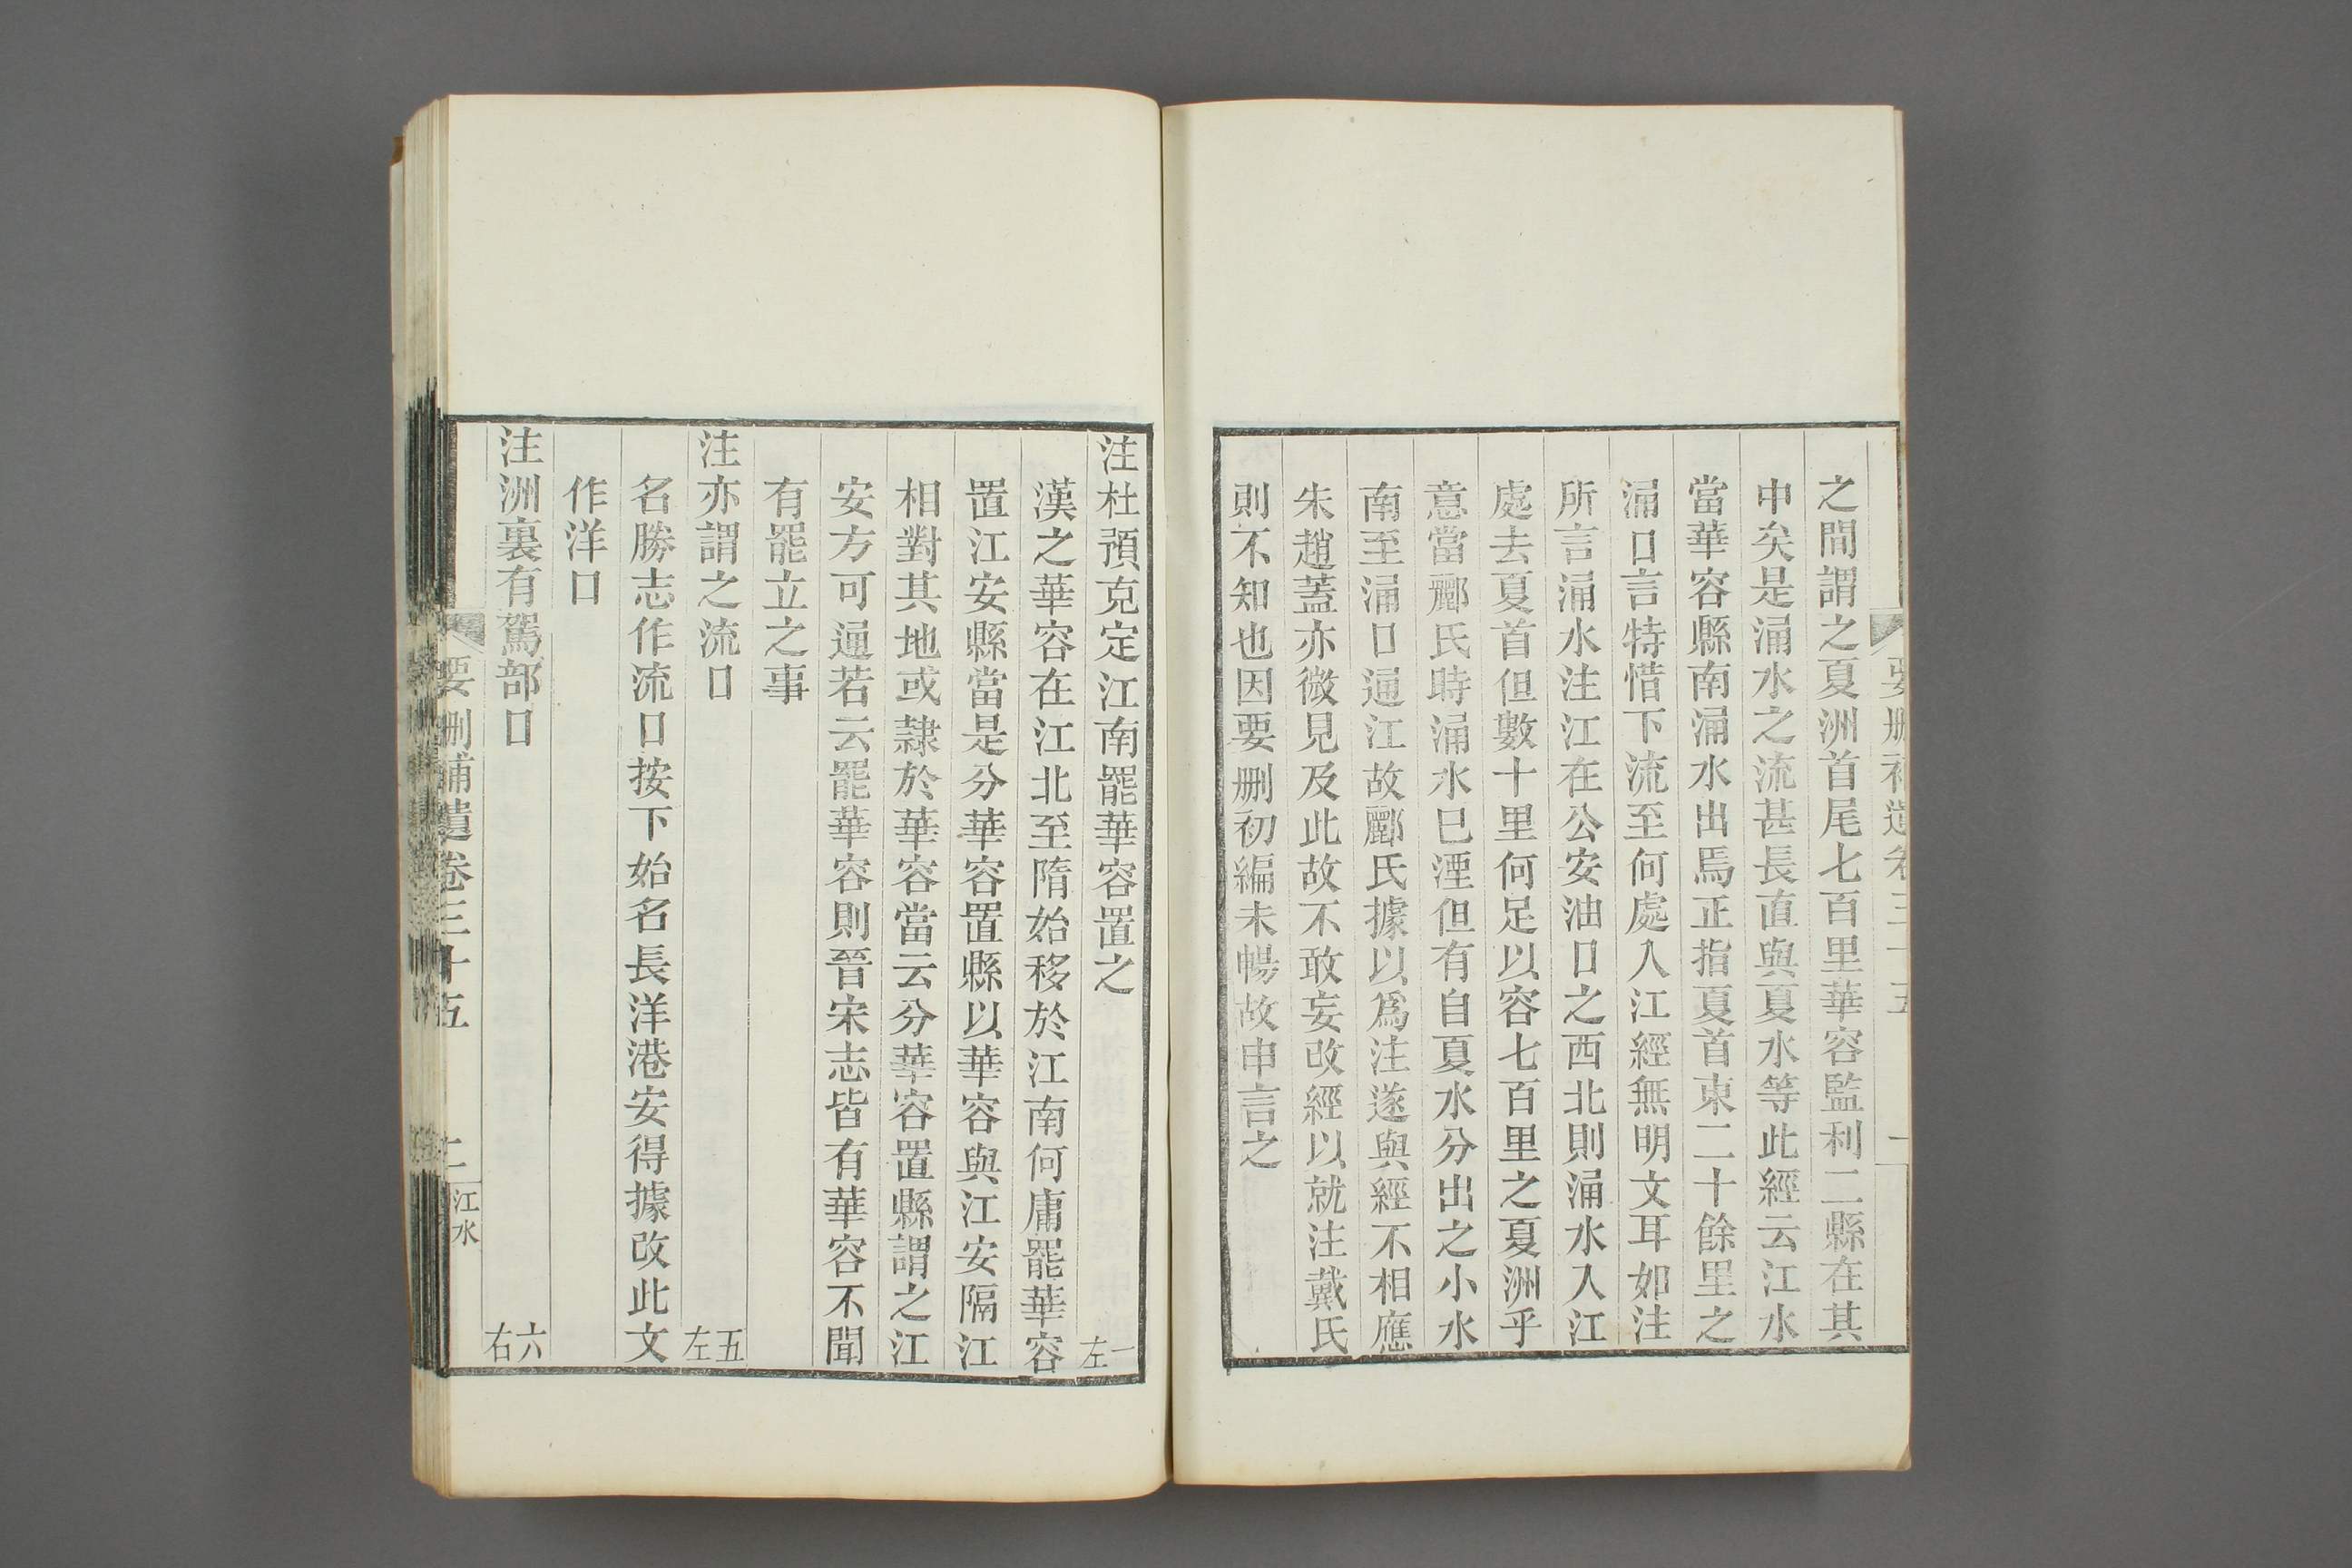 之間謂之夏洲首尾七百里華容監利二縣在其
中矣是涌水之流甚長直與夏水等此經云江水
當華容縣南涌水出焉正指夏首東二十餘里之
涌口言特惜下流至何處入江經無明文耳如注
所言涌水注江在公安油口之西北則涌水入江
處去夏首但數十里何足以容七百里之夏洲乎
意當酈氏時涌水巳湮但有自夏水分出之小水
南至涌口通江故酈氏據以爲注遂與經不相應
朱趙蓋亦微見及此故不敢妄改經以就注戴氏
則不知也因要刪初編未暢故申言之
注杜預克定江南罷華容置之 一左
漢之華容在江北至隋始移於江南何庸罷華容
置江安縣當是分華容置縣以華容與江安隔江
相對其地或隸於華容當云分華容置縣謂之江
安方可通若云罷華容則晉宋志皆有華容不聞
有罷立之事
注亦謂之流口 五左
名勝志作流口按下始名長洋港安得據改此文
作洋口
注洲裏有駕部口 六右
要刪補遺卷三十五 二 江水